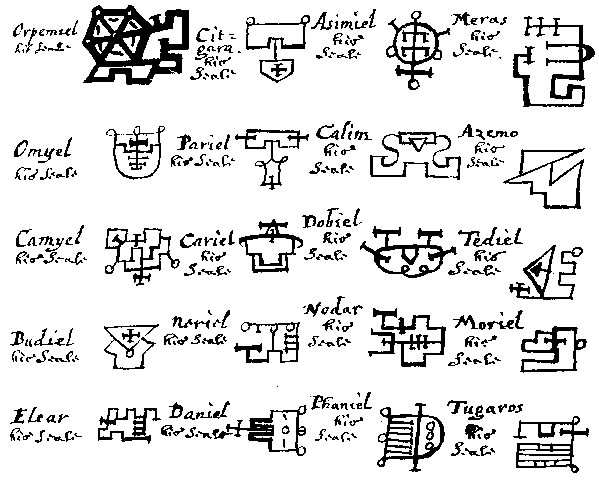 Orpemiel
his Seale
Cit=
gara
his
Seale
Asimiel
his
Seale
Meras
his
Seale
Omyel
his Seale
Pariel
his Seale
Calim
his
Seale
Azemo
his
Seale
Camyel
his Seale
Cariel
his
Seale
Dobiel
his
Seale
Tediel
his
Seale
Budiel
his Seale
Neriel
his Seale
Nodar
his
Seale
Moriel
his
Seale
Elear
his Seale
Daniel
his Seale
Phaniel
his
Seale
Tugaros
his
Seale